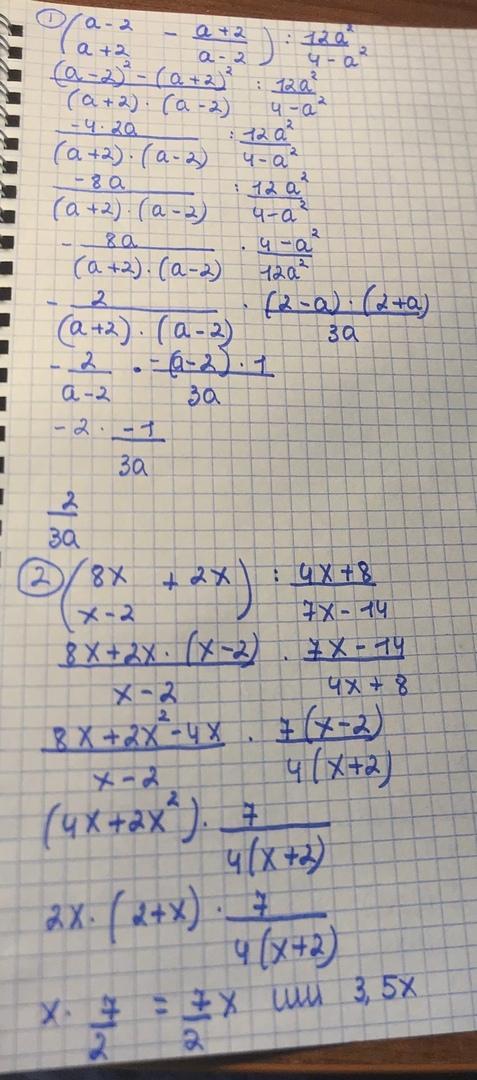 ① ((a-2)/(a+2) - (a+2)/(a-2)) : 12a²/(4-a²)
((a-2)² - (a+2)²)/((a+2)·(a-2)) : 12a²/(4-a²)
(-4·2a)/((a+2)·(a-2)) : 12a²/(4-a²)
(-8a)/((a+2)·(a-2)) : 12a²/(4-a²)
- 8a/((a+2)·(a-2)) · (4-a²)/12a²
- 2/((a+2)·(a-2)) · ((2-a)·(2+a))/3a
- 2/(a-2) · (-(a-2)·1)/3a
-2 · (-1)/3a
2/3a
② (8x/(x-2) + 2x) : (4x+8)/(7x-14)
(8x+2x·(x-2))/(x-2) · (7x-14)/(4x+8)
(8x+2x²-4x)/(x-2) · 7(x-2)/4(x+2)
(4x+2x²) · 7/4(x+2)
2x·(2+x) · 7/4(x+2)
x · 7/2 = 7/2 x или 3,5x